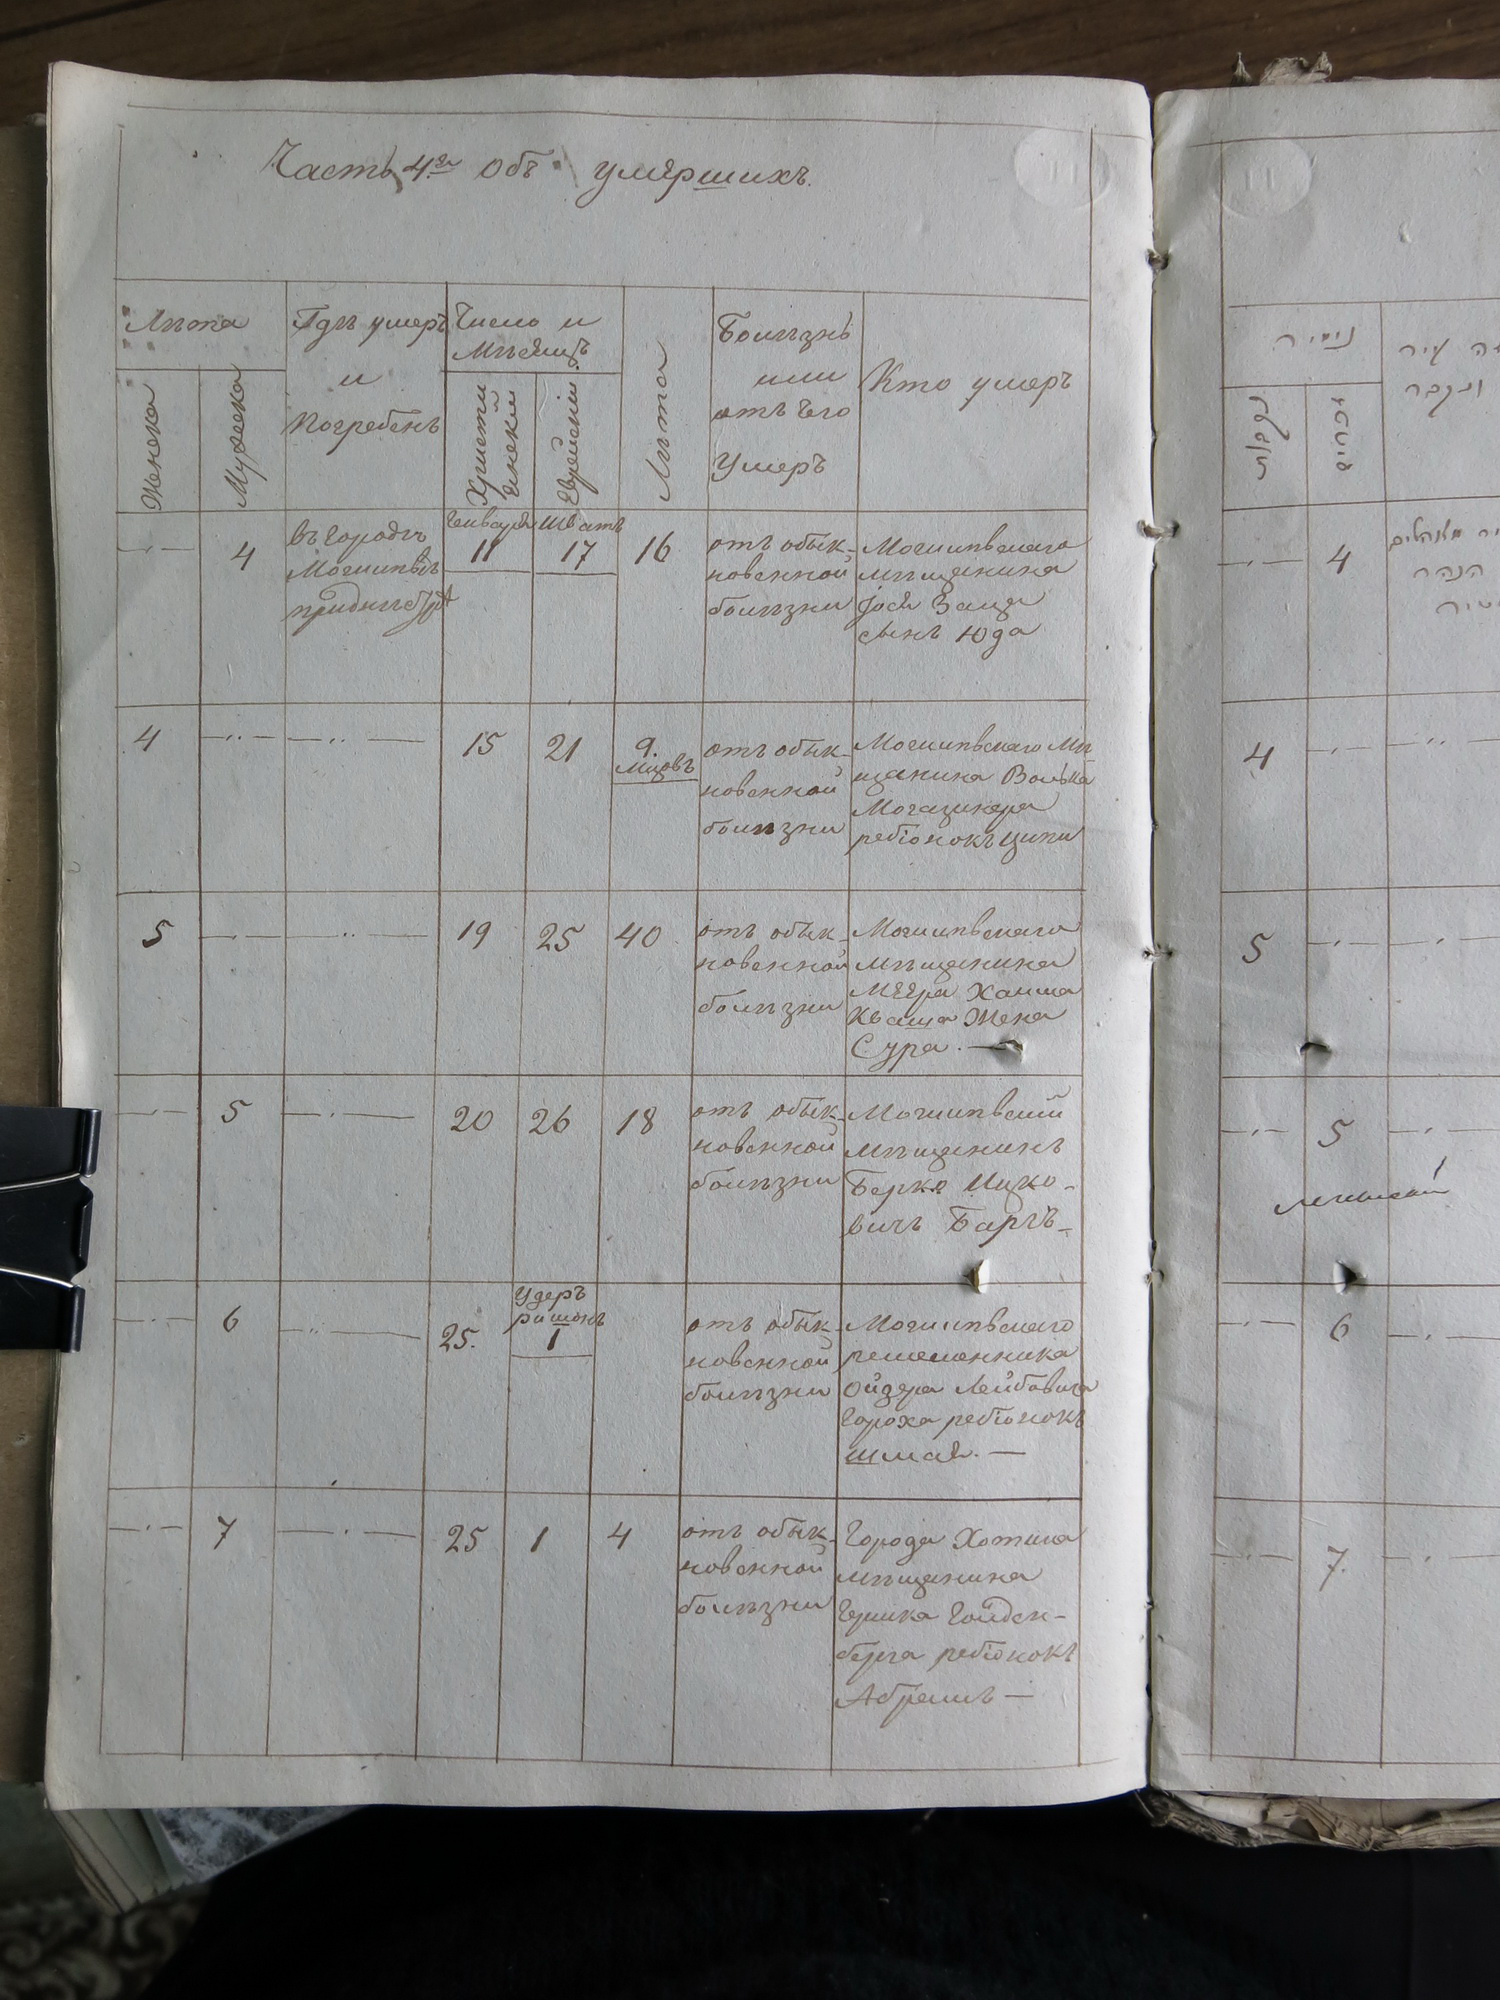 Часть 4ая объ умерших.
Лѣта
Женска
Мужеска
Гдѣ умеръ
и
Погребенъ
Число и
Мѣсяцъ
Християнский
Еврейский
Лѣта
Болѣзнь
или
отъ чего
Умеръ
Кто умеръ
4
въ городѣ
Могилевѣ
Генваря
11
Шватъ
17
16
отъ обык-
новенной
болѣзни
Могилевскаго
мѣщанина
сынъ Юда
4
15
21
9.
отъ обык-
новенной
болѣзни
Могилевскаго мѣ-
щанина Волька
Могазинера
ребіонокъ Ципи
5
19
25
40
отъ обык-
новенной
болѣзни
Могилевскаго
мѣщанина
Меера Хаима
Кваша Жена
Сура. —
5
20
26
18
отъ обык-
новенной
болѣзни
Могилевский
мѣщанинъ
Берко Ицко-
вичъ Баргъ
6
25.
Удеръ
ришонъ
1
отъ обык-
новенной
болѣзни
Могилевскаго
ремеменника
Ойзера Лейбовича
Гороха ребіонокъ
Шмая. —
7
25
1
4
отъ обык-
новенной
болѣзни
Города Хотина
мѣщанина
Гершка Гойден-
берга ребіонокъ
Абрамъ —
11
4
4
5
5
6
7.